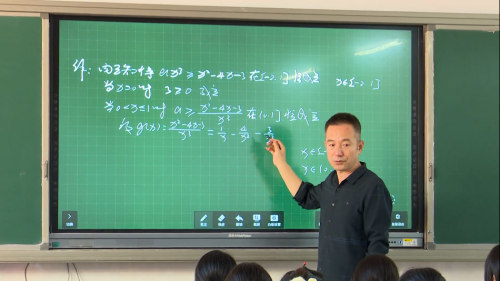 解：由已知得 ax³ ≥ x²-4x-3 在[-2,1]恒成立 x∈[-2,1]
当x=0时 3≥0 成立
当0<x≤1时 a≥(x²-4x-3)/x³ 在(0,1]恒成立
令g(x)=(x²-4x-3)/x³ = 1/x - 4/x² - 3/x³
x∈[-
x∈(0,